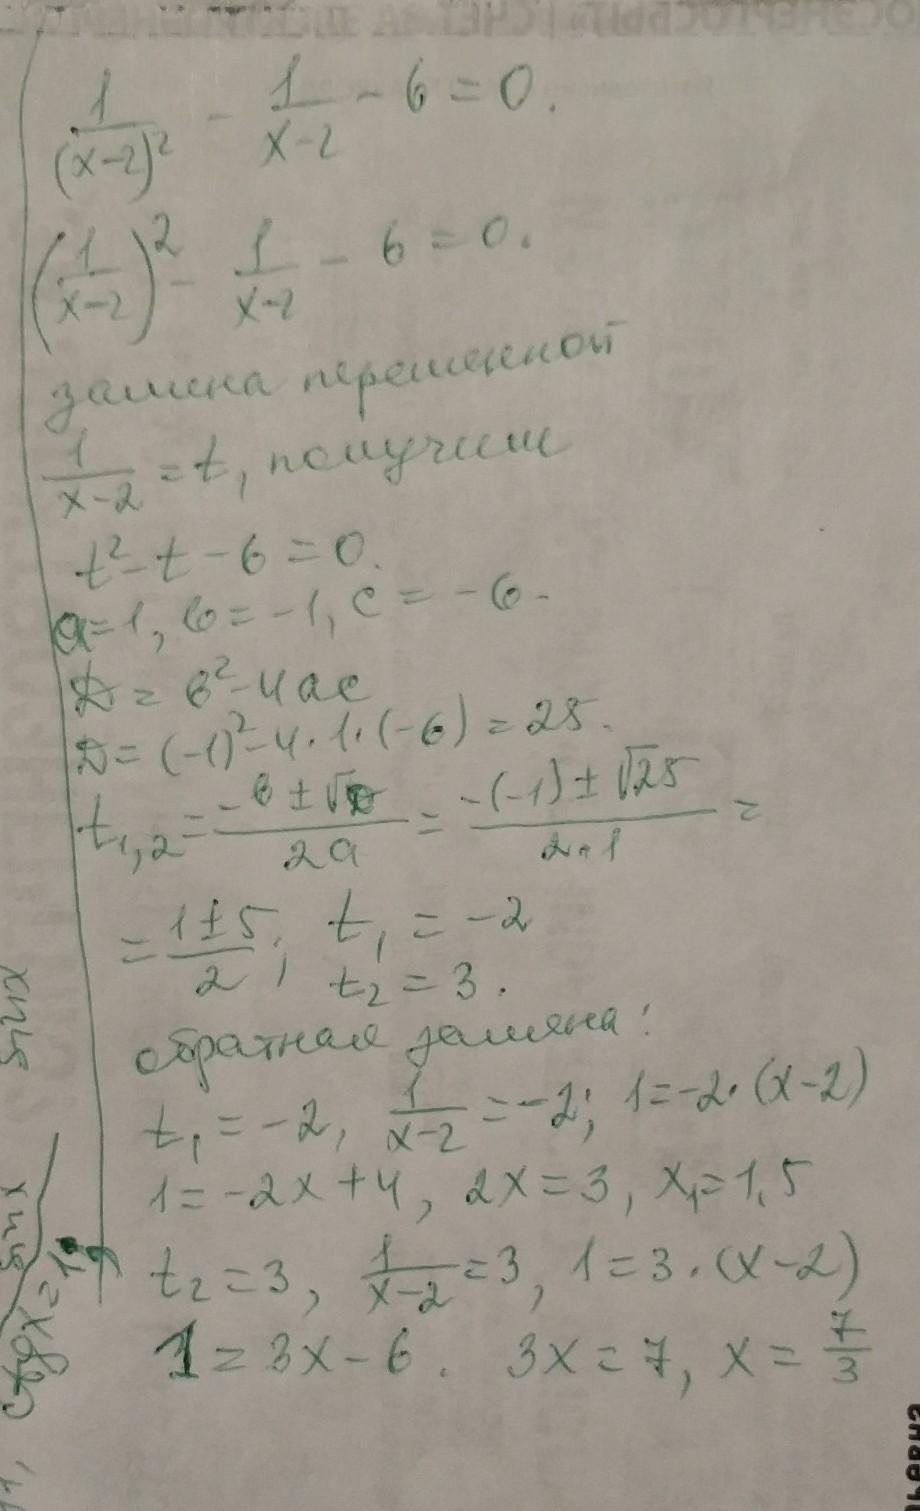 1/(x-2)² - 1/(x-2) - 6 = 0.
(1/(x-2))² - 1/(x-2) - 6 = 0.
замена переменной
1/(x-2) = t, получим
t² - t - 6 = 0.
a=1, b=-1, c=-6.
D = b² - 4ac
D = (-1)² - 4·1·(-6) = 25.
t₁,₂ = (-b ± √D)/(2a) = (-(-1) ± √25)/(2·1) =
= (1 ± 5)/2; t₁ = -2
t₂ = 3.
обратная замена:
t₁ = -2, 1/(x-2) = -2; 1 = -2·(x-2)
1 = -2x + 4, 2x = 3, x₁ = 1,5
t₂ = 3, 1/(x-2) = 3, 1 = 3·(x-2)
1 = 3x - 6. 3x = 7, x = 7/3
sin x
sin x
ctg x = 1